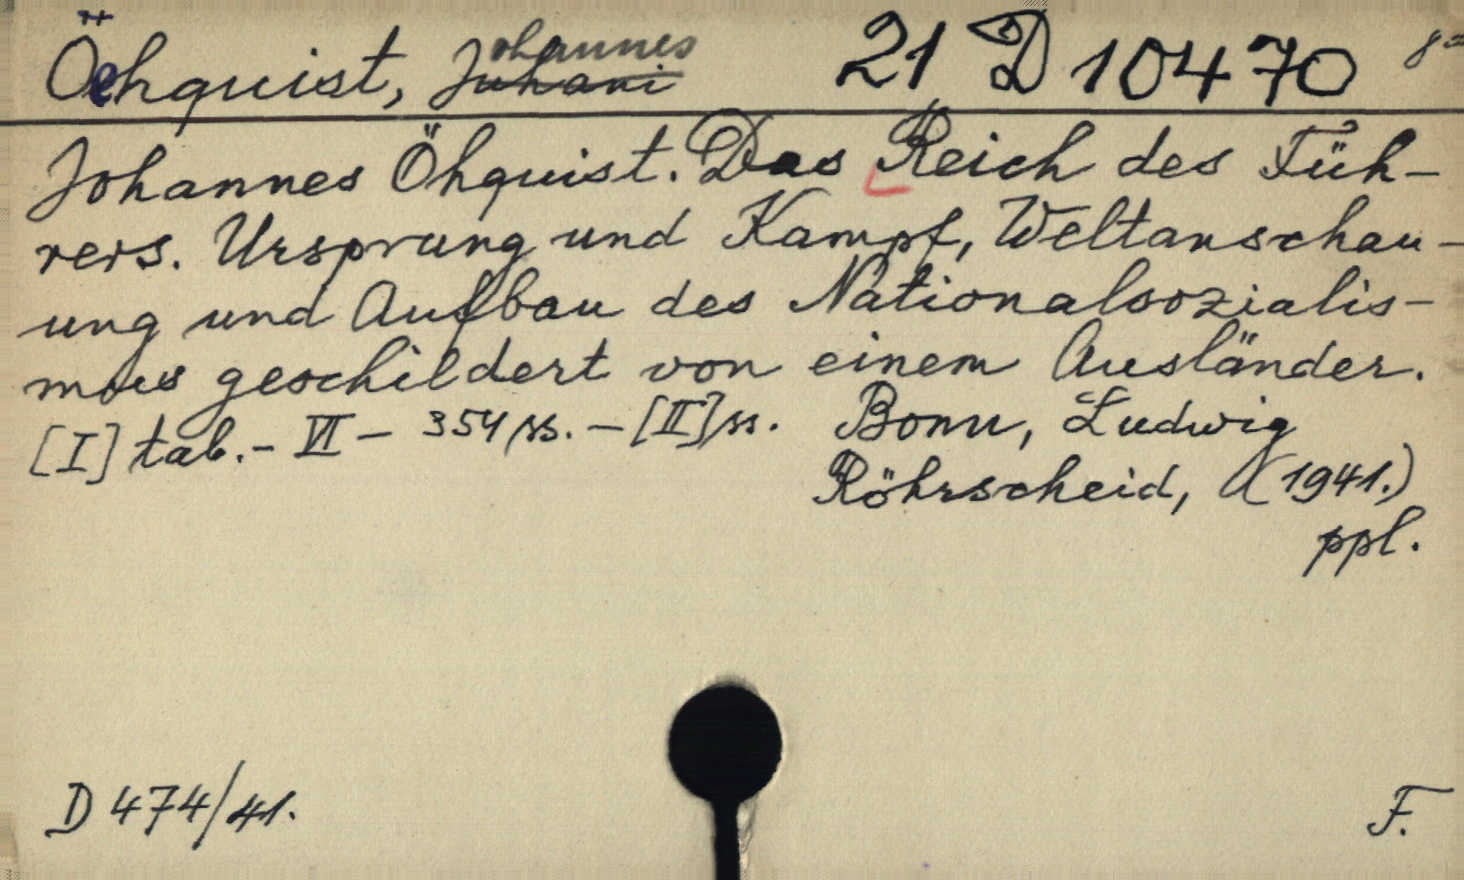 Öehquist, Johannes Juhani 21 D 10470 8°
Johannes Öhquist. Das Reich des Füh-
rers. Ursprung und Kampf, Weltanschau-
ung und Aufbau des Nationalsozialis-
mus geschildert von einem Ausländer.
[I] tab. - VI - 354 ss. - [II] ss. Bonn, Ludwig
Röhrscheid, (1941.)
ppl.
D 474/41. F.